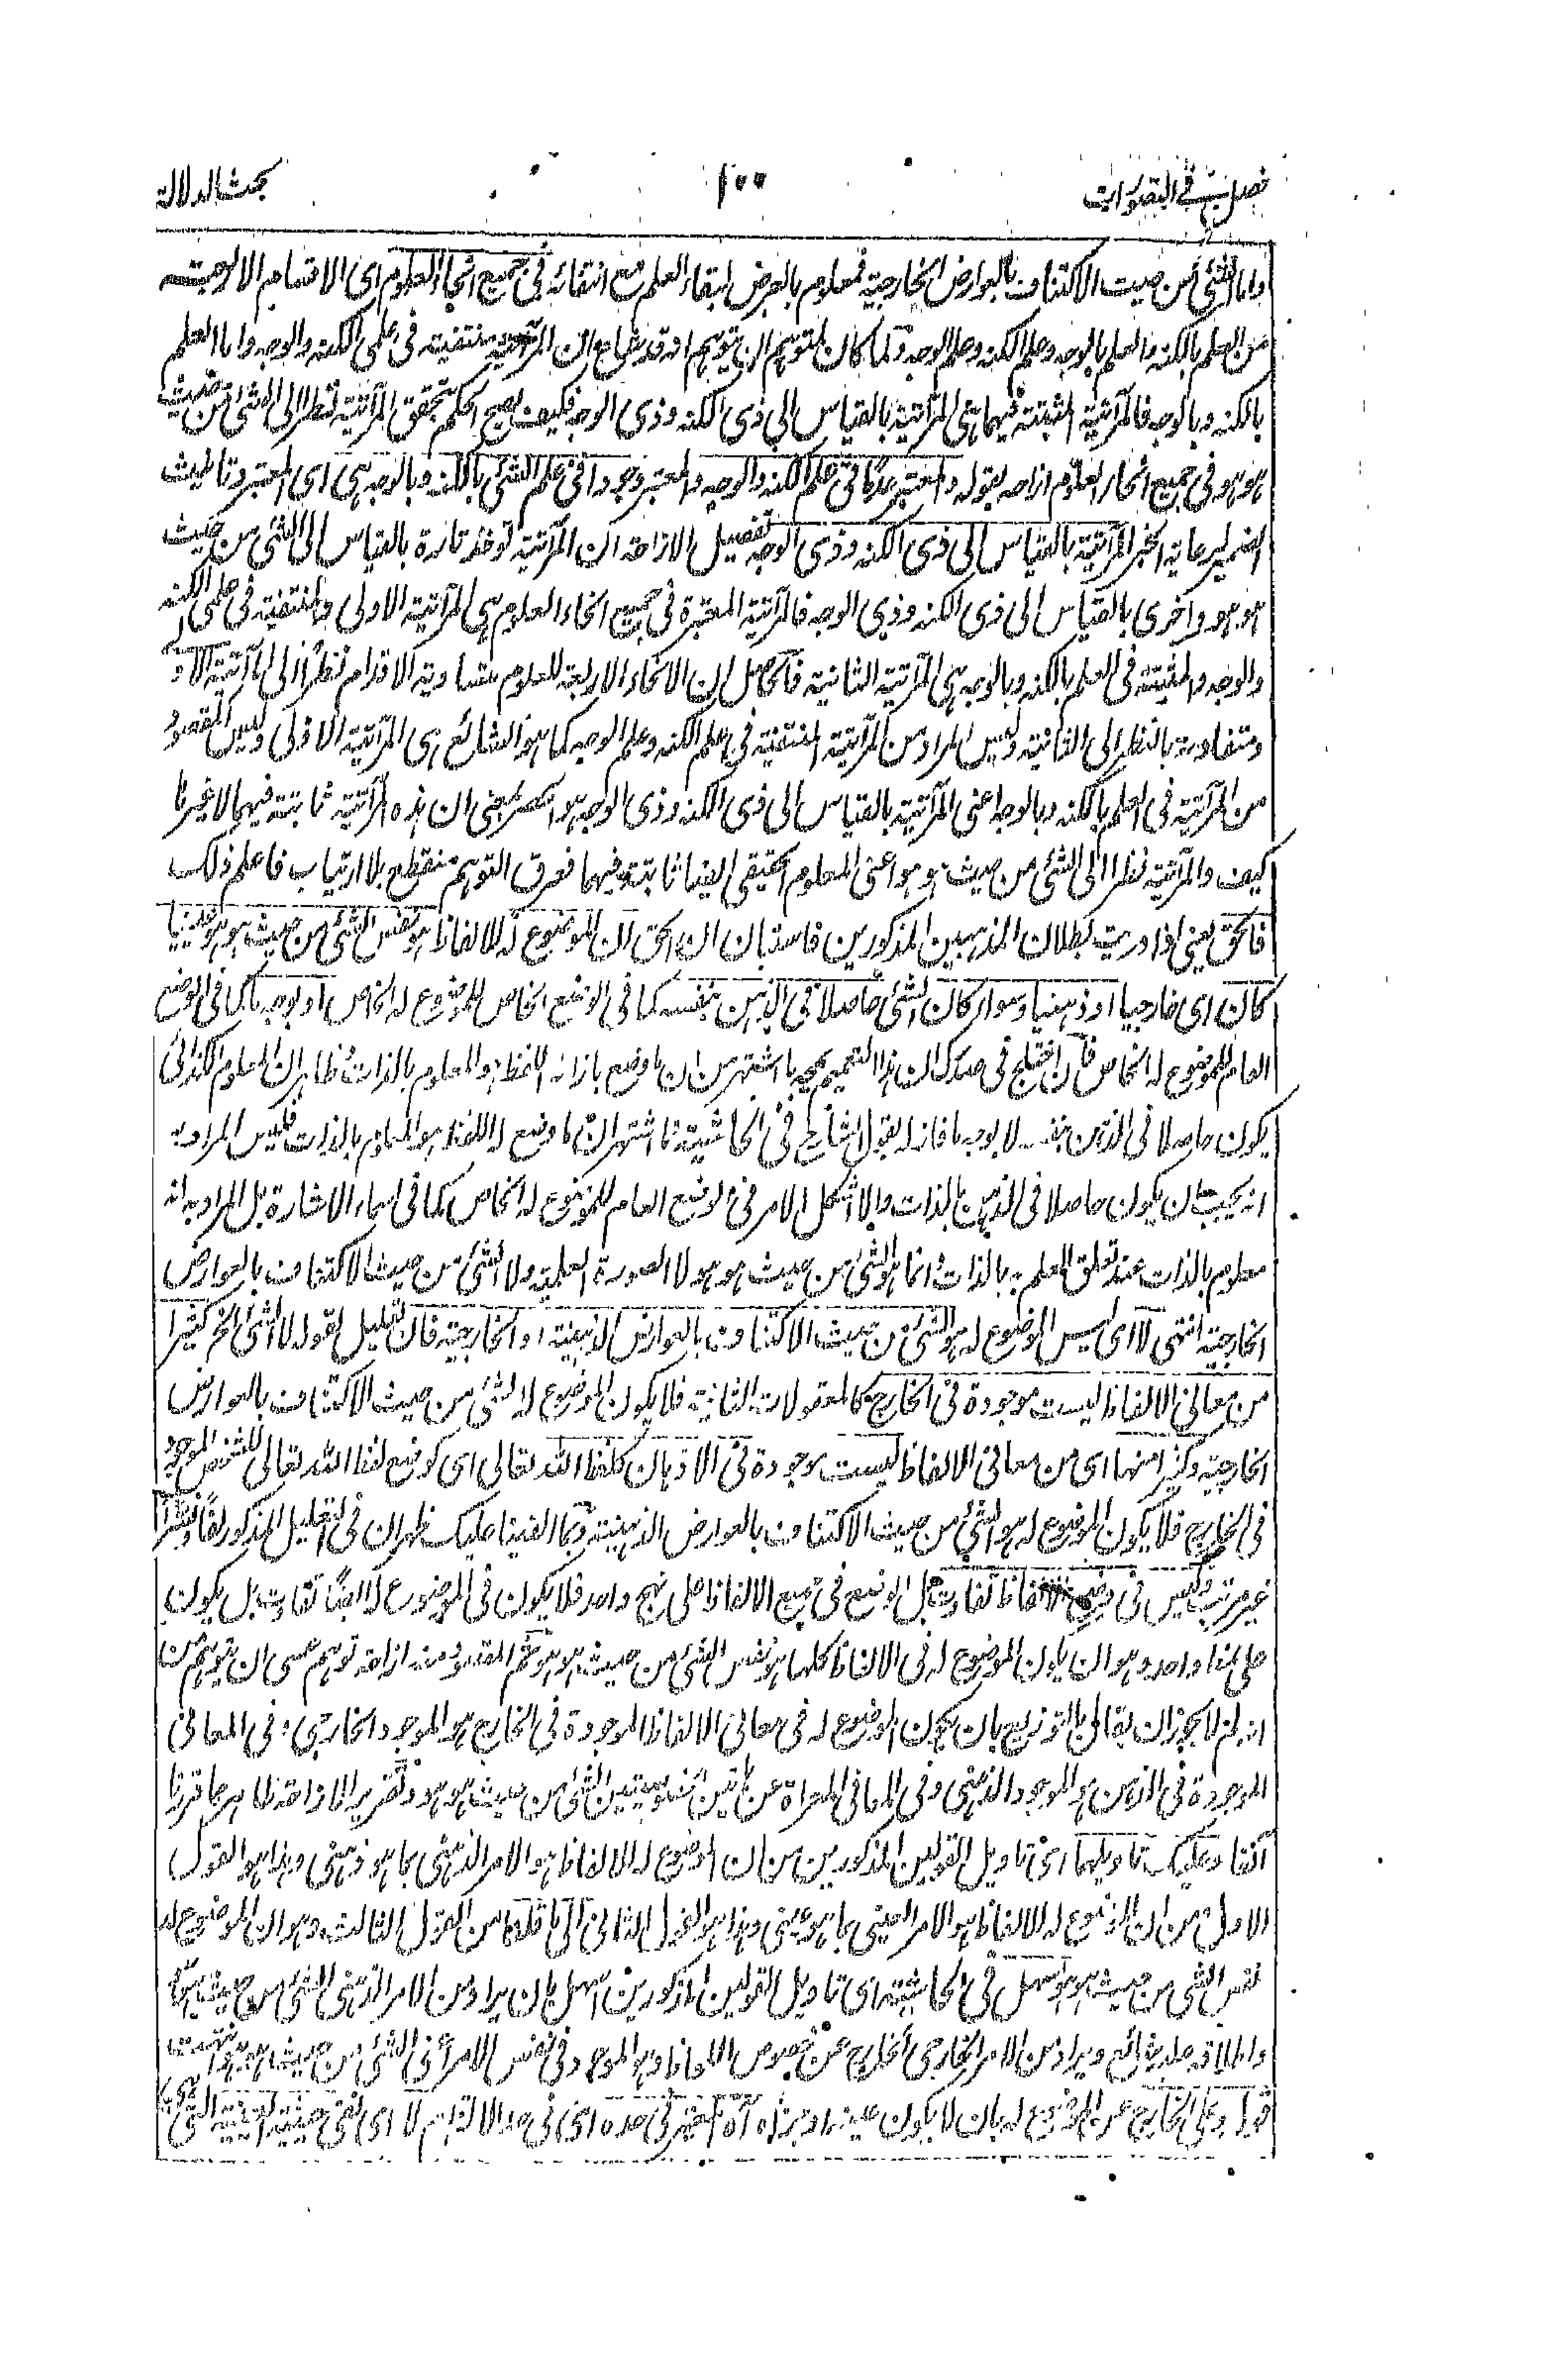 فصل في التصورات
١٠٠
بحث الدلالة
واما الشئ من حيث الاكتناف بالعوارض الخارجية فمعلوم بالعرض لبقاء العلم مع انتفائه في جميع انحاء العلوم اى الاقسام الاربعة
من العلم بالكنه والعلم بالوجه وعلم الكنه وعلم الوجه ولما كان لمتوهم ان يتوهم انه قد شاع ان المرآتية منتفية في علمى الكنه والوجه واما العلم
بالكنه وبالوجه فالمرآتية المثبتة فيهما هى المرآتية بالقياس الى ذى الكنه وذى الوجه فكيف يصح الحكم بتحقق المرآتية نظرا الى الشئ من حيث
هو هو في جميع انحاء العلوم ازاحه بقوله والمعتبر عدما في علم الكنه والوجه والمعتبر وجودا في علم الشئ بالكنه وبالوجه هى اى المعتبر وتانيث
الضمير لرعاية الخبر المرآتية بالقياس الى ذى الكنه وذى الوجه تفصيل الازاحة ان المرآتية توخذ تارة بالقياس الى الشئ من حيث
هو هو واخرى بالقياس الى ذى الكنه وذى الوجه فالمرآتية المعتبرة في جميع انحاء العلوم هى المرآتية الاولى والمنتفية في علمى الكنه
والوجه والمثبتة في العلم بالكنه وبالوجه هى المرآتية الثانية فالحاصل ان الانحاء الاربعة للعلوم متساوية الاقدام نظرا الى المرآتية الاولى
ومتفاوتة بالنظر الى الثانية وليس المراد من المرآتية المنتفية في علم الكنه وعلم الوجه كما هو الشائع هى المرآتية الاولى وليس المقصود
من المرآتية في العلم بالكنه وبالوجه اعنى المرآتية بالقياس الى ذى الكنه وذى الوجه هو الحصر بمعنى ان هذه المرآتية ثابتة فيهما لا غيرها
كيف والمرآتية نظرا الى الشئ من حيث هو هو اعنى المعلوم الحقيقى ايضا ثابتة فيهما فعرق التوهم منقطع بلا ارتياب فاعلم ذلك
فالحق يعنى اذا دريت بطلان المذهبين المذكورين فاستبان ان الحق ان الموضوع له للالفاظ هو نفس الشئ من حيث هو هو عينيا
كان اى خارجيا او ذهنيا وسواء كان الشئ حاصلا في الذهن بنفسه كما في الوضع الخاص للموضوع له الخاص او بوجه ما كما في الوضع
العام للموضوع له الخاص فان اختلج في صدرك ان هذا التعميم يمجه ما اشتهر من ان ما وضع بازائه اللفظ هو المعلوم بالذات وظاهر ان المعلوم بالذات
يكون حاصلا في الذهن بنفسه لا بوجه ما فازله بقول الشارح في الحاشية ما اشتهر ان ما وضع له اللفظ هو المعلوم بالذات فليس المراد منه
انه يجب ان يكون حاصلا في الذهن بالذات والا اشكل الامر في الوضع العام للموضوع له الخاص كما في اسماء الاشارة بل المراد به انه
معلوم بالذات عند تعلق العلم به بالذات وانما هو الشئ من حيث هو هو لا الصورة العلمية ولا الشئ من حيث الاكتناف بالعوارض
الخارجية انتهى لا اى ليس الموضوع له هو الشئ من حيث الاكتناف بالعوارض الذهنية او الخارجية فان تعليل لقوله لا الشئ الخ كثيرا
من معانى الالفاظ ليست موجودة في الخارج كالمعقولات الثانية فلا يكون الموضوع له الشئ من حيث الاكتناف بالعوارض
الخارجية وكثيرا منها اى من معانى الالفاظ ليست موجودة في الاذهان كلفظ الله تعالى اى كوضع لفظ الله تعالى للشخص الموجود
في الخارج فلا يكون الموضوع له هو الشئ من حيث الاكتناف بالعوارض الذهنية وبما القينا عليك ظهر ان في التعليل المذكور لفا ونشرا
غير مرتب وليس في وضع الالفاظ تفاوت بل الوضع في جميع الالفاظ على نهج واحد فلا يكون في الموضوع له ايضا تفاوت بل يكون
على نمط واحد وهو ان يكون الموضوع له في الالفاظ كلها هو نفس الشئ من حيث هو هو ثم المقصود منه ازاحة توهم عسى ان يتوهم من
انه لم لا يجوز ان يقال بالتوزيع بان يكون الموضوع له في معانى الالفاظ الموجودة في الخارج هو الموجود الخارجى وفي المعانى
الموجودة في الذهن هو الموجود الذهنى وفي المعانى المعراة عن هاتين الخصوصيتين الشئ من حيث هو هو وتقرير الازاحة ظاهر مما قررنا
آنفا وعليك تاويلهما اى تاويل القولين المذكورين من ان الموضوع له للالفاظ هو الامر الذهنى بما هو ذهنى وهذا هو القول
الاول ومن ان الموضوع له للالفاظ هو الامر العينى بما هو عينى وهذا هو القول الثانى الى ما قلنا من القول الثالث وهو ان الموضوع له
نفس الشئ من حيث هو هو سهل في الحاشية اى تاويل القولين المذكورين اسهل بان يراد من الامر الذهنى الشئ من حيث هو
واطلاقه عليه شائع ويراد من الامر الخارجى الخارج عن خصوص اللحاظ وهو الموجود في نفس الامر اعنى الشئ من حيث هو هو انتهت
قوله وعلى الخارج عن الموضوع له بان لا يكون عينه او جزءه آه اعتبر في حده اى في حد الالتزام لا اى نفى حيثية العينية التى